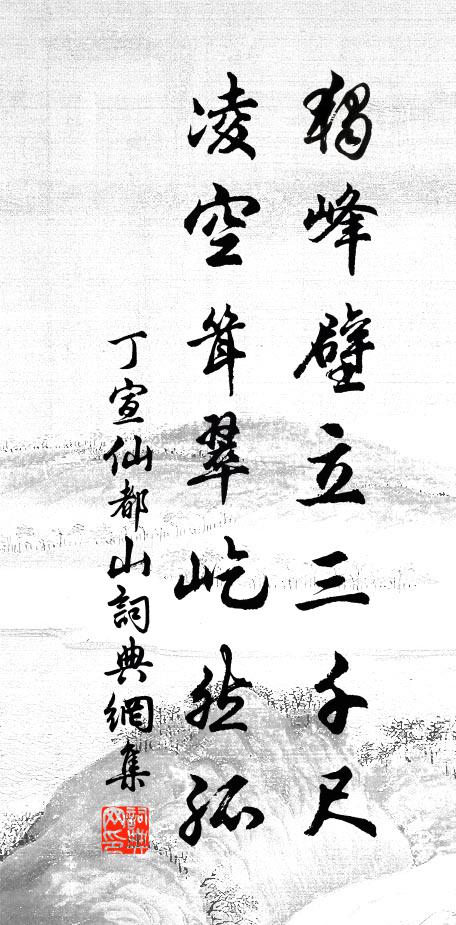 獨峰壁立三千尺
凌空聳翠屹然孤
丁宣仙都山詞典網集